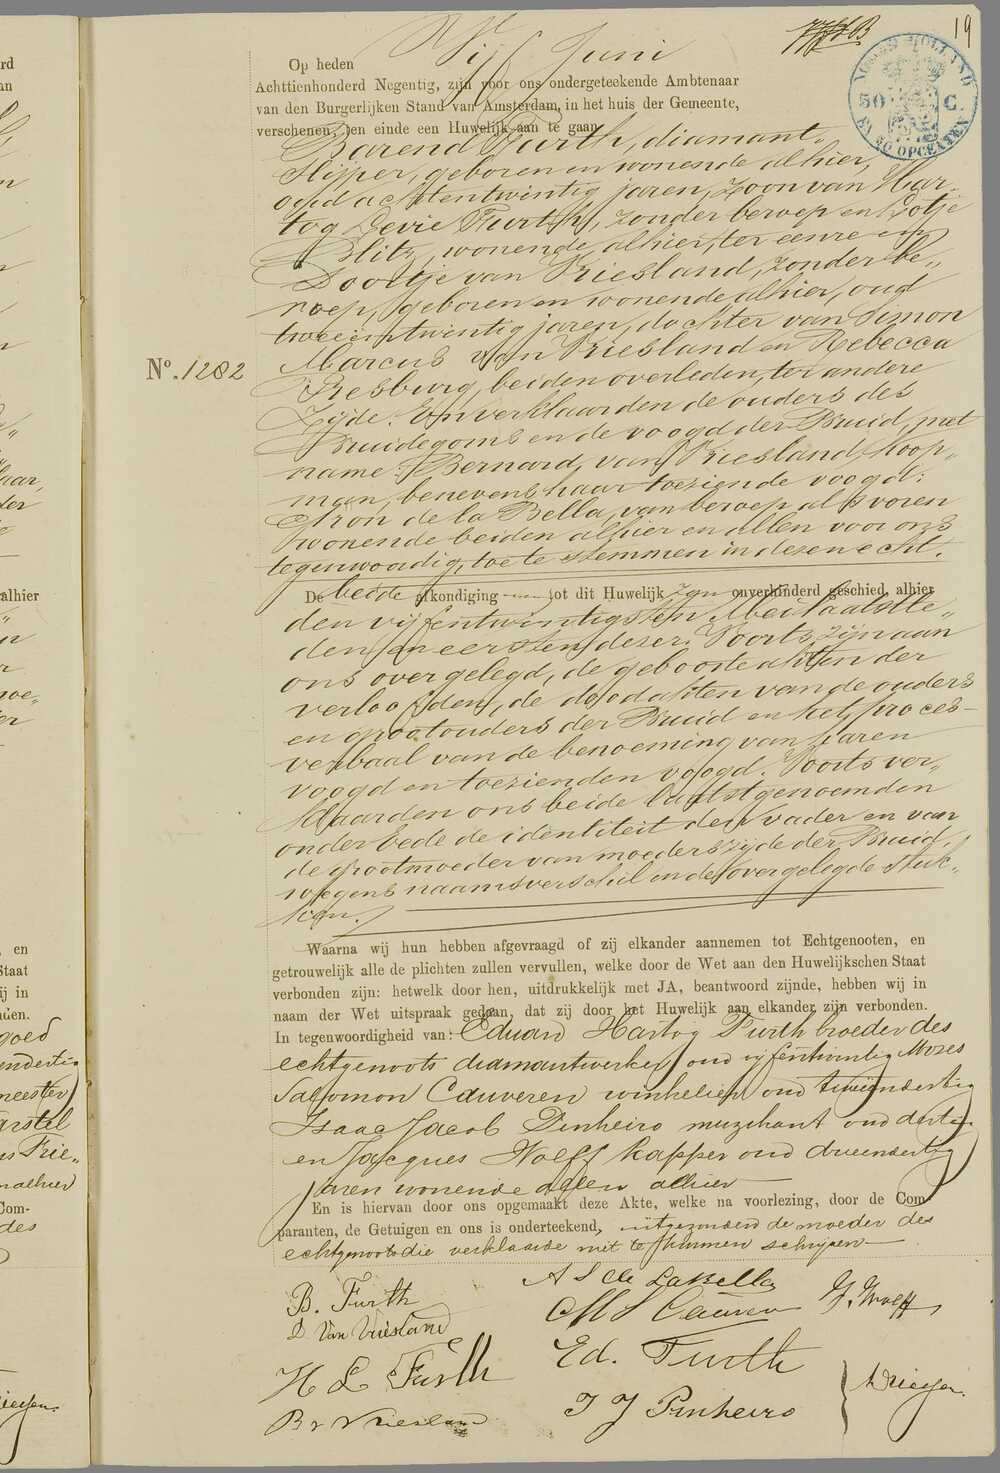 19
NOORD HOLLAND
50 C.
EN 30 OPCENTEN
Op heden Vijf Juni
Achttienhonderd Negentig, zijn voor ons ondergeteekende Ambtenaar
van den Burgerlijken Stand van Amsterdam, in het huis der Gemeente,
verschenen, ten einde een Huwelijk aan te gaan
Barend Furth, diamant-
slijper, geboren en wonende alhier,
oud achtentwintig jaren, zoon van Har-
tog Levie Furth, zonder beroep en Rotje
Blitz, wonende alhier, ter eenre en
Doortje van Friesland, zonder be-
roep, geboren en wonende alhier, oud
tweeëntwintig jaren, dochter van Simon
Marcus van Friesland en Rebecca
Presburg, beiden overleden, ter andere
No. 1282
Zijde. En verklaarden de ouders des
Bruidegoms en de voogd der Bruid, met
name: Bernard van Friesland, koop-
man, benevens haar toeziende voogd:
Aron de la Bella, van beroep als voren
wonende beiden alhier en allen voor ons
tegenwoordig, toe te stemmen in dezen echt.
De beide afkondiging tot dit Huwelijk zijn onverhinderd geschied, alhier
den vijfentwintigsten Mei laatstle-
den en eersten dezer. Voorts zijn aan
ons overgelegd, de geboorteakten der
verloofden, de doodakten van de ouders
en grootouders der Bruid en het proces-
verbaal van de benoeming van haren
voogd en toezienden voogd. Voorts ver-
klaarden ons beide laatstgenoemden
onder eede de identiteit der vader en van
de grootmoeder van moederszijde der Bruid,
wegens naamsverschil in de overgelegde stuk-
ken.
Waarna wij hun hebben afgevraagd of zij elkander aannemen tot Echtgenooten, en
getrouwelijk alle de plichten zullen vervullen, welke door de Wet aan den Huwelijkschen Staat
verbonden zijn: hetwelk door hen, uitdrukkelijk met JA, beantwoord zijnde, hebben wij in
naam der Wet uitspraak gedaan, dat zij door het Huwelijk aan elkander zijn verbonden.
In tegenwoordigheid van: Eduard Hartog Furth broeder des
echtgenoots diamantwerker oud vijfentwintig Mozes
Salomon Cauveren winkelier oud tweeendertig
Isaac Jacob Pinheiro muzikant oud dertig
en Jacques Wolff kapper oud drieendertig
jaren wonende allen alhier
En is hiervan door ons opgemaakt deze Akte, welke na voorlezing, door de Com
paranten, de Getuigen en ons is onderteekend, uitgezonderd de moeder des
echtgenoots die verklaarde niet te kunnen schrijven
B. Furth
D Van Vriesland
H L Furth
B v Vriesland
A S de LaBella
M S Cauveren
J. Wolff
Ed. Furth
I J Pinheiro